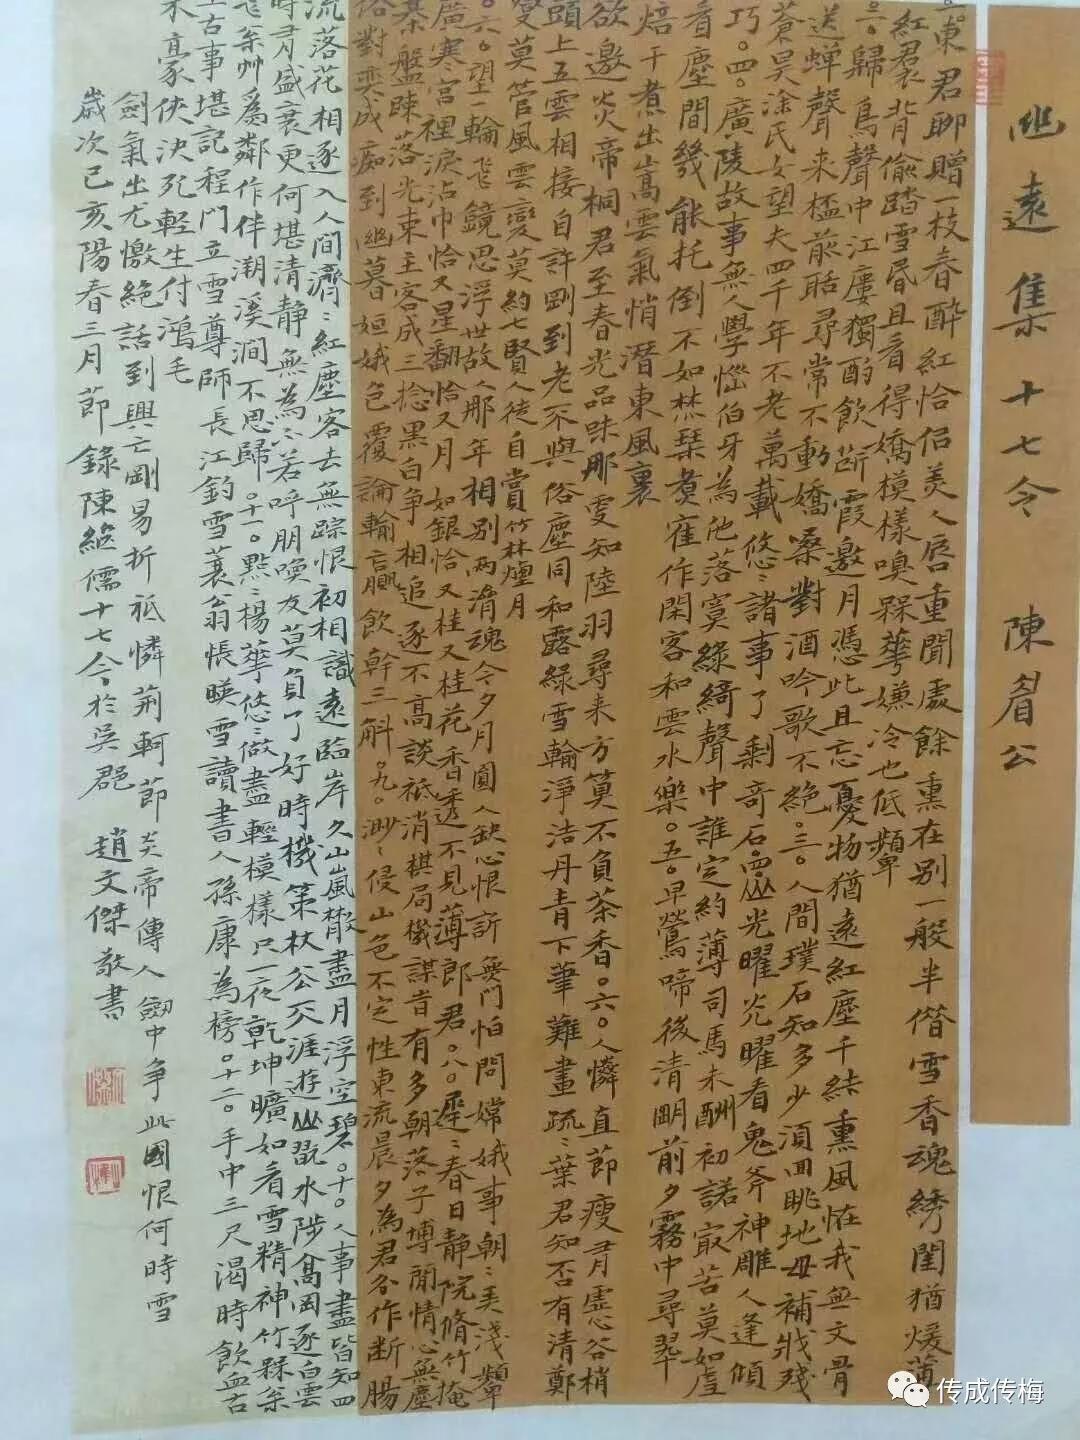 幽遠集十七令 陳眉公
一。東君聊贈一枝春醉紅恰侶美人唇重聞處餘熏在別一般半偕雪香魂綉閨猶煖蕾
紅裙背偷踏雪昏且看得嬌模樣嗅槑華嫌冷也低顰
二。歸鳥聲中江廔獨酌飲茚霞邀月憑此且忘憂物猶遠紅塵千結熏風怪我無文骨
送蟬聲来榼前聒尋常不動嬌嗓對酒吟歌不絕。三。人間璞石知多少須囬眺地母補戕殘
蒼昊涂氏女望夫四千年不老萬載悠〻諸事了剩奇石幽丛光曜炗曜看鬼斧神雕人逢傾
巧。四。廣陵故事無人學惱伯牙為他落寞綠綺聲中誰定約薄司馬未酬初諾寂苦莫如虗
看塵間幾能托倒不如焚琹煑隺作閑客和雲水樂。五。早鶯啼後清明前夕霧中尋翠
焙干煮出山高雲氣悄潛東風裏
欲邀炎帝桐君至春光品味那雯知陸羽尋来方算不負茶香。六。人憐直節瘦青虛谷梢
頭上五雲相接自許剛到老不與俗塵同和露綠雪輪淨洁丹青下筆難畫疏〻葉君知否有清鄭
燮莫管風雲變莫約七賢人徒自賞竹林煙月
六。望一輪飞鏡思浮世故人那年相别兩淯魂今夕月圓人缺心恨訢無門怕問嫦娥事朝〻美淺顰
廣寒宮裡淚沾巾恰又星翻恰又月如銀恰又桂又桂花香透不見薄郎君。八。遲〻春日静院脩竹掩
棊盤踈落光束主客成三捻黑白争相追逐不高談祗消棋局機謀昔有多朝落子博閒情心無塵
俗對奕成痴到幽暮姮娥色覆論輸贏飲幹三斛。九。渺〻侵山色不定性東流晨夕為君谷作断腸
流落花相逐入人間濟〻紅塵客去無踪恨初相識遠臨岸久山嵐散盡月浮空碧。十。人事盡皆知四
時青盛衰更何堪清静無為〻若呼朋喚友莫負了好時機策杖公天涯遊丛歌水陟高岡逐白雲
飞奈艸爲鄰作伴溯溪澗不思歸。十一。點〻楊華悠〻做盡輕模樣只一夜乾坤曠如看雪精神竹槑奈
上古事堪記程門立雪尊師長江釣雪蓑翁悵暎雪讀書人孫康為榜。十二。手中三尺渴時飲血古
来豪俠決死輕生付鴻毛
劍氣出尤憿絕話到興亡剛易折祗憐荆軻節炎帝傳人劒中争此國恨何時雪
歲次己亥陽春三月節錄陳繼儒十七令於吳郡 趙文傑敬書
传成传梅